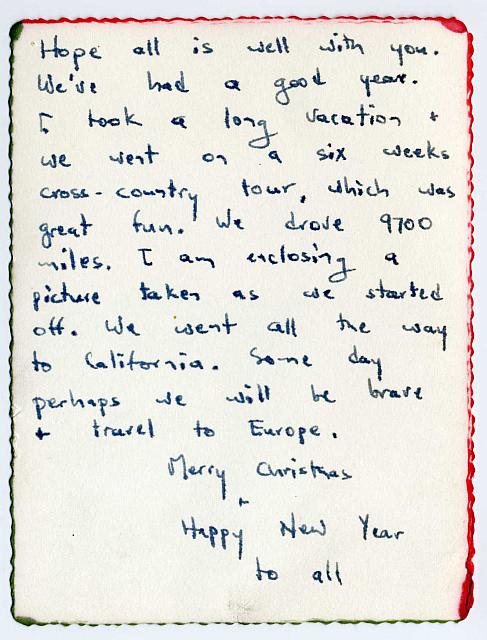 Hope all is well with you.
We've had a good year.
I took a long vacation +
we went on a six weeks
cross-country tour, which was
great fun. We drove 9700
miles. I am enclosing a
picture taken as we started
off. We went all the way
to California. Some day
perhaps we will be brave
+ travel to Europe.
Merry Christmas
+
Happy New Year
to all